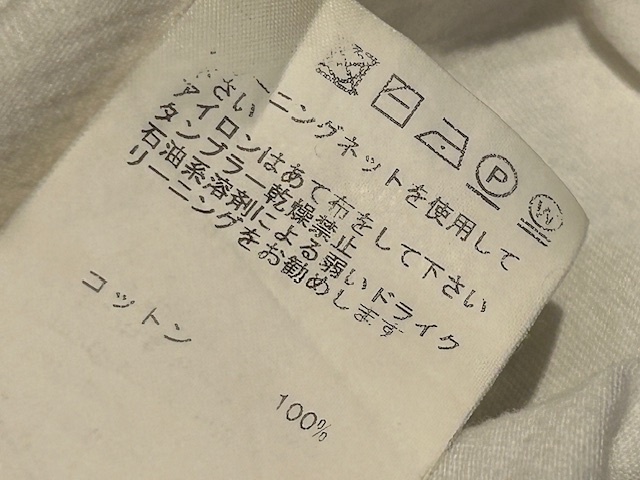 ーニングネットを使用して
さい
アイロンはあて布をして下さい
タンブラー乾燥禁止
石油系溶剤による弱いドライク
リーニングをお勧めします
P
W
コットン
100%